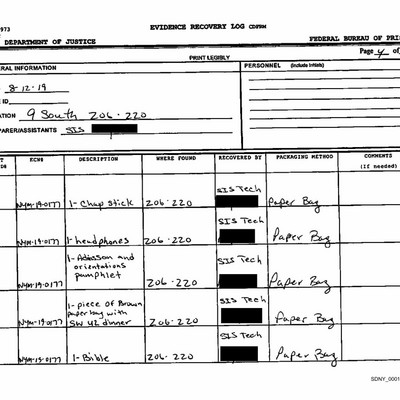 973
EVIDENCE RECOVERY LOG CDFRM
DEPARTMENT OF JUSTICE
FEDERAL BUREAU OF PRI
PRINT LEGIBLY
Page 4 of
ERAL INFORMATION
PERSONNEL (include Initials)
8-12-19
E ID
ATION 9 South 206-220
PARER/ASSISTANTS SIS
KCW# DESCRIPTION WHERE FOUND RECOVERED BY PACKAGING METHOD COMMENTS
(If needed)
SIS Tech
NYM-19-0177 1-Chap stick 206-220 Paper Bag
SIS Tech
NYM-19-0177 1-headphones 206-220 Paper Bag
1-Admission and
orientations
SIS Tech
NYM-19-0177 pamphlet 206-220 Paper Bag
1-piece of Brown
paper bag with
SIS Tech
NYM-19-0177 SW 42 dinner 206-220 Paper Bag
SIS Tech
NYM-19-0177 1-Bible 206-220 Paper Bag
SDNY_0001